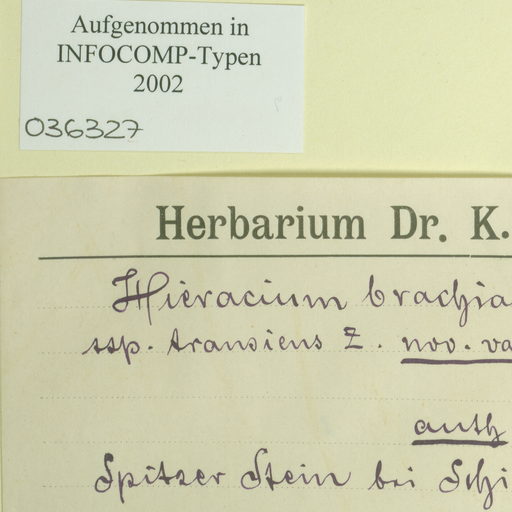 Aufgenommen in
INFOCOMP-Typen
2002
036327
Herbarium Dr. K.
Hieracium brachia
ssp. transiens Z. nov. va
auth
Spitzer Stein bei Schi